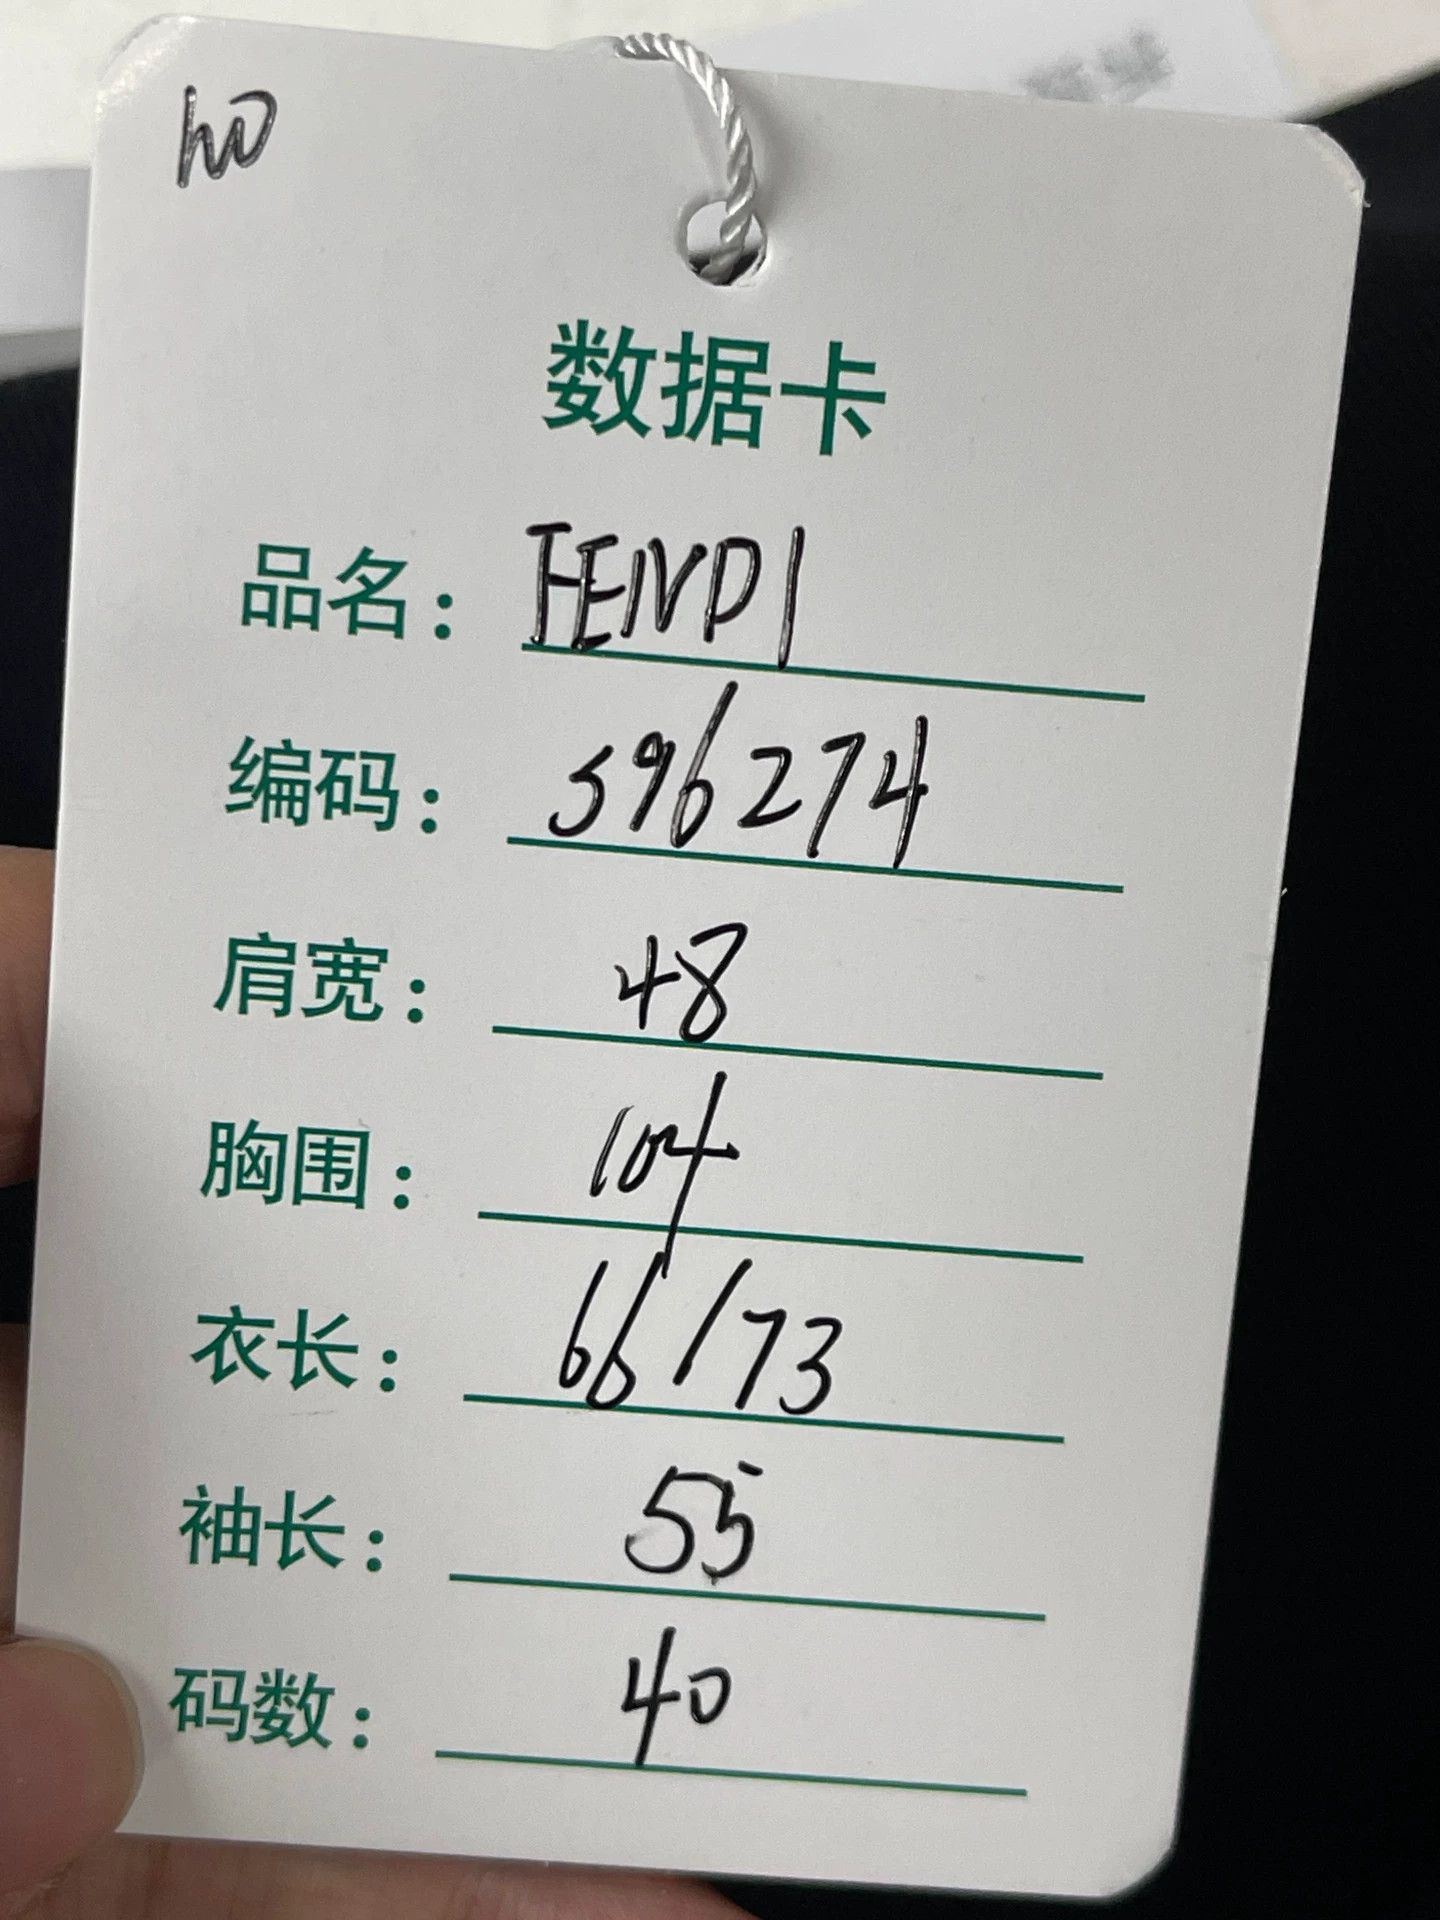 数据卡
品名：FENDI
编码：596274
肩宽：48
胸围：104
衣长：66/73
袖长：55
码数：40